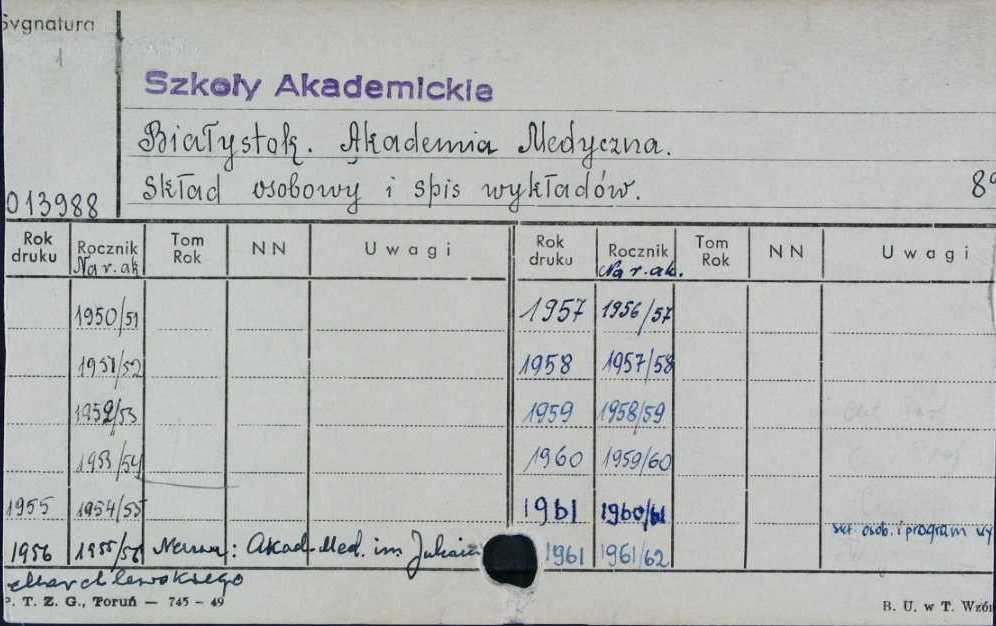 Sygnatura
1
Szkoły Akademickie
Białystok. Akademia Medyczna.
Skład osobowy i spis wykładów. 89
013988
Rok druku Rocznik Na r. ak. Tom Rok NN Uwagi Rok druku Rocznik Na r. ak. Tom Rok NN Uwagi
1950/51 1957 1956/57
1951/52 1958 1957/58
1952/53 1959 1958/59
1953/54 1960 1959/60
1955 1954/55 1961 1960/61
skł. osob. i program wy
1956 1955/56 : Akad. Med. im Juliana 1961 1961/62
Marchlewskiego
P. T. Z. G., Toruń — 745 – 49 B. U. w T. Wzór